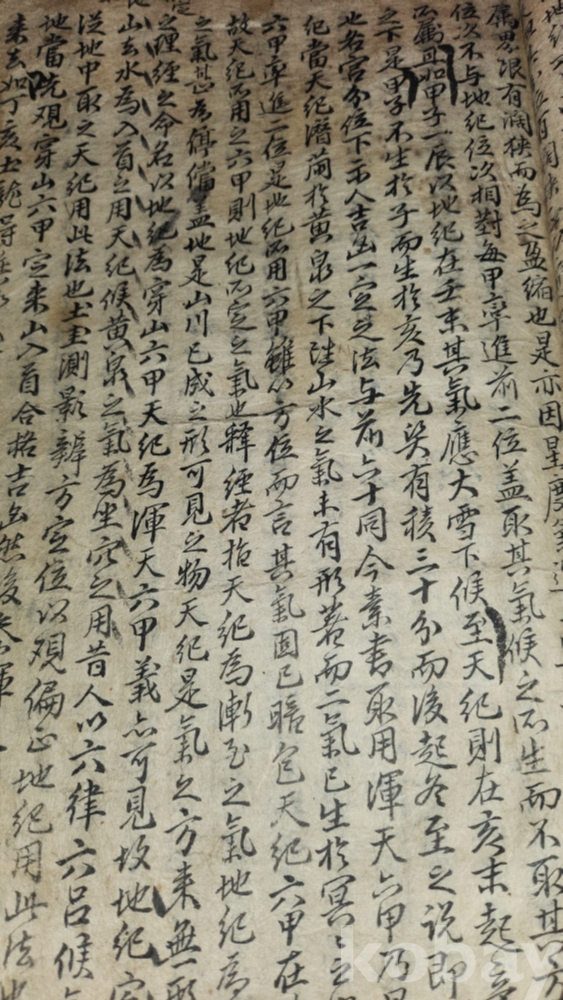 属界限有濶狹而為之盈縮也是亦因星度
位次不与地紀位次相對每甲率進前二位盖取其氣候之所生而不取其方
不属且如甲子一辰以地紀在壬末其氣應大雪下候至天紀則在亥末起
之下是甲子不生於子而生於亥乃先哭有積三十分而後起冬至之說即
地名宮分位下示人吉凶一定之法与前六十同今素書取用渾天六甲乃
紀當天紀潛萠於黃泉之下陡山水之氣未有形著而二氣已生於冥之
六甲率進一位是地紀所用六甲雖以方位而言其氣固已暗包天紀六甲在
故天紀所用之六甲則地紀所定之氣也釋經者指天紀為漸至之氣地紀為
之氣為停儅盖地是山川已成之形可見之物天紀是氣之方来無形
之理經之命名以地紀為穿山六甲天紀為渾天六甲義亦可見故地紀
山去水為入首之用天紀候黃泉之氣為坐穴之用昔人以六律六呂候
從地中取之天紀用此法也土圭測影辨方定位以观偏正地紀用此法也
地當先观穿山六甲定来山入首合格吉凶然後
来去如丁亥土龍
kobay